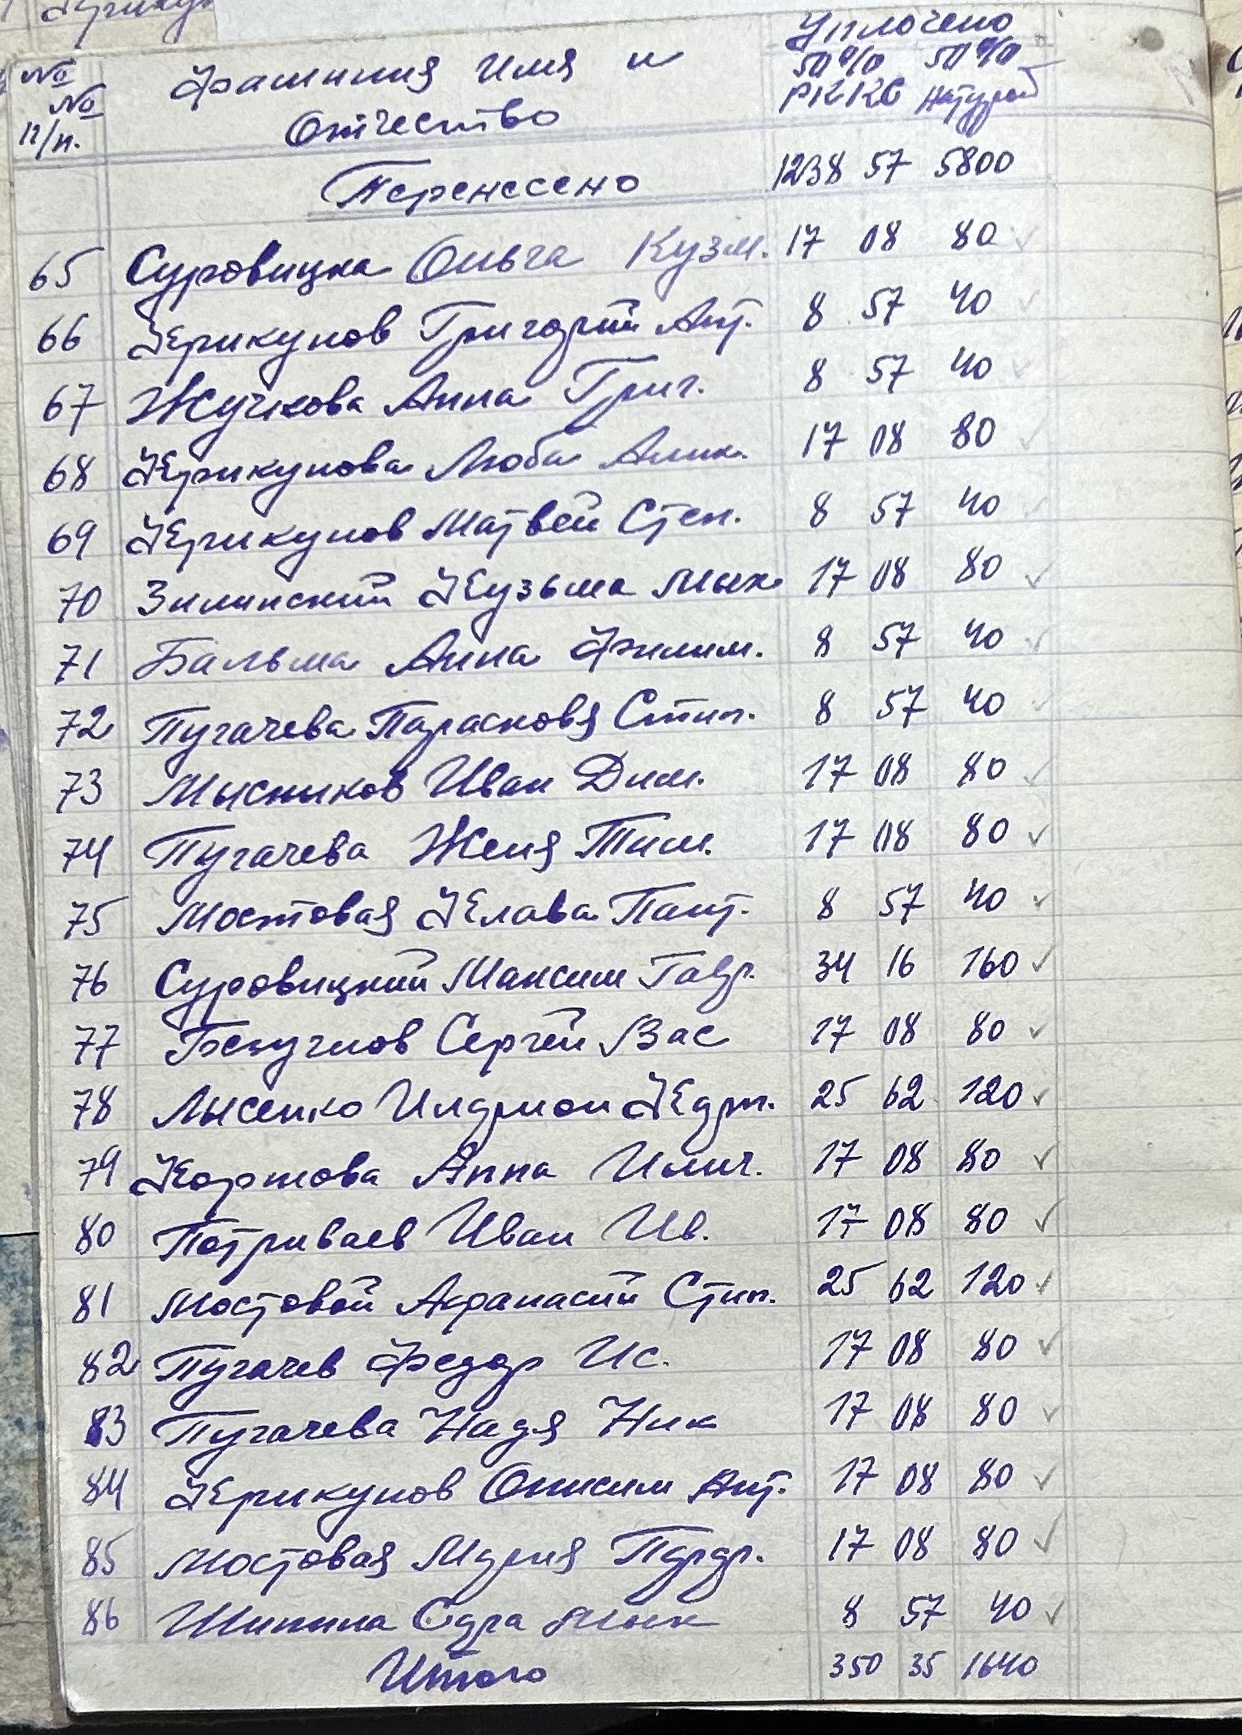 Уплочено
№ Фамилия Имя и 50% 50%
№ Отчество РККС Натурой
п/п.
Перенесено 1238 57 5800
65 Суровицка Ольга Кузм. 17 08 80 ✓
66 Черикунов Григорий Ант. 8 57 40 ✓
67 Жучкова Анна Григ. 8 57 40 ✓
68 Черикунова Люба 17 08 80 ✓
69 Черикунов Матвей Степ. 8 57 40 ✓
70 Зилинский Кузьма Мих 17 08 80 ✓
71 Бальма Анна Филим. 8 57 40 ✓
72 Пугачева Парасковя Стип. 8 57 40 ✓
73 Мысников Иван Дим. 17 08 80 ✓
74 Пугачева Женя Тим. 17 08 80 ✓
75 Мостовая Клава Пант. 8 57 40 ✓
76 Суровицкий Максим Гавр. 34 16 160 ✓
77 Сергей Вас 17 08 80 ✓
78 Лысенко Иларион 25 62 120 ✓
79 Анна Илич. 17 08 80 ✓
80 Потриваев Иван Ив. 17 08 80 ✓
81 Мостовой Афанасий Стип. 25 62 120 ✓
82 Пугачев Федор Ис. 17 08 80 ✓
83 Пугачева Надя Ник 17 08 80 ✓
84 Черикунов Онисим Ант. 17 08 80 ✓
85 Мостовая Мария 17 08 80 ✓
86 Шипила 8 57 40 ✓
Итого 350 35 1640